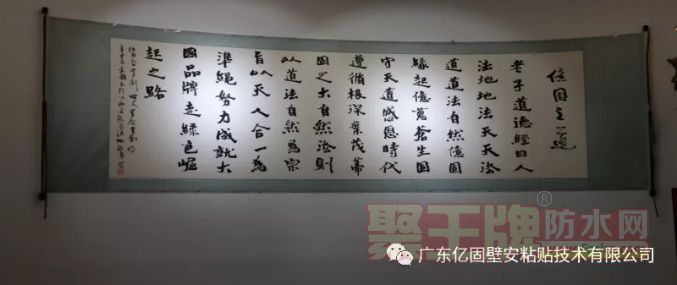 億固之道
老子道德經曰人
法地地法天天法
道道法自然億固
緣起億萬蒼生固
守天道感恩時代
遵循根深葉茂蒂
固之大自然法則
以道法自然為宗
旨以天人合一為
準繩努力成就大
國品牌走綠色崛
起之路
聚王牌®防水网
广东亿固壁安粘贴技术有限公司